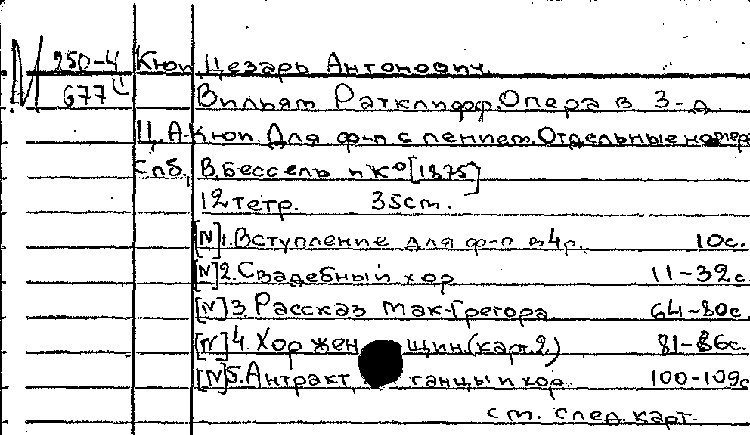 М 250-4 Кюи, Цезарь Антонович.
677 Вильям Ратклифф. Опера в 3-д.
Ц. А. Кюи. Для ф-п с пением. Отдельные номера
Спб, В. Бессель и К° [1875]
12 тетр. 35 cm.
[N] 1. Вступление для ф-п в 4 р. 10 с.
[N] 2. Свадебный хор 11-32 с
[N] 3. Рассказ Мак-Грегора 64-80 с.
[N] 4. Хор женщин. (карт. 2.) 81-86 с.
[N] 5. Антракт, танцы и хор. 100-109 с
см. след. карт.